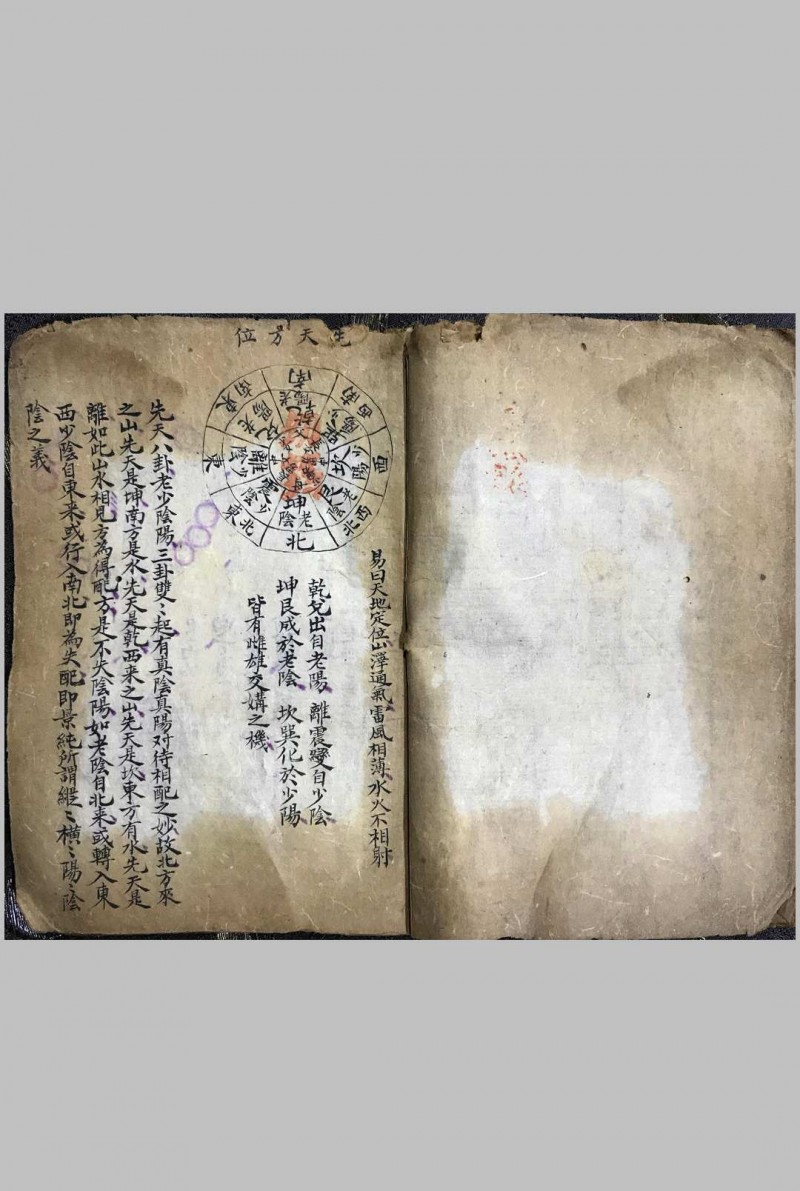 先天方位
南
乾
老陽
西南
巽
少陽
西
坎
少陽
西北
艮
老陰
北
坤
老陰
東北
震
少陰
東
離
少陰
東南
兌
老陽
易曰天地定位山澤通氣雷風相薄水火不相射
乾兌出自老陽 離震變自少陰
坤艮成於老陰 坎巽化於少陽
皆有雌雄交媾之機
先天八卦老少陰陽三卦雙〻起有真陰真陽対待相配之妙故北方來
之山先天是坤南方是水先天是乾西来之山先天是坎東方有水先天是
離如此山水相見方為得配方是不失陰陽如老陰自北来或轉入東
西少陰自東来或行入南北即為失配即景純所謂縱〻橫〻陽〻陰
陰之義